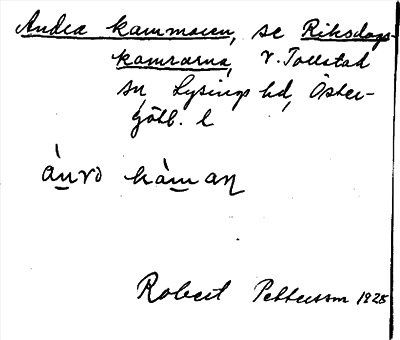 Andra kammaren, se Riksdags-
kamrarna, V. Tollstad
sn, Lysings hd, Öster-
götl. l
ànrd kàman
Robert Pettersson 1928